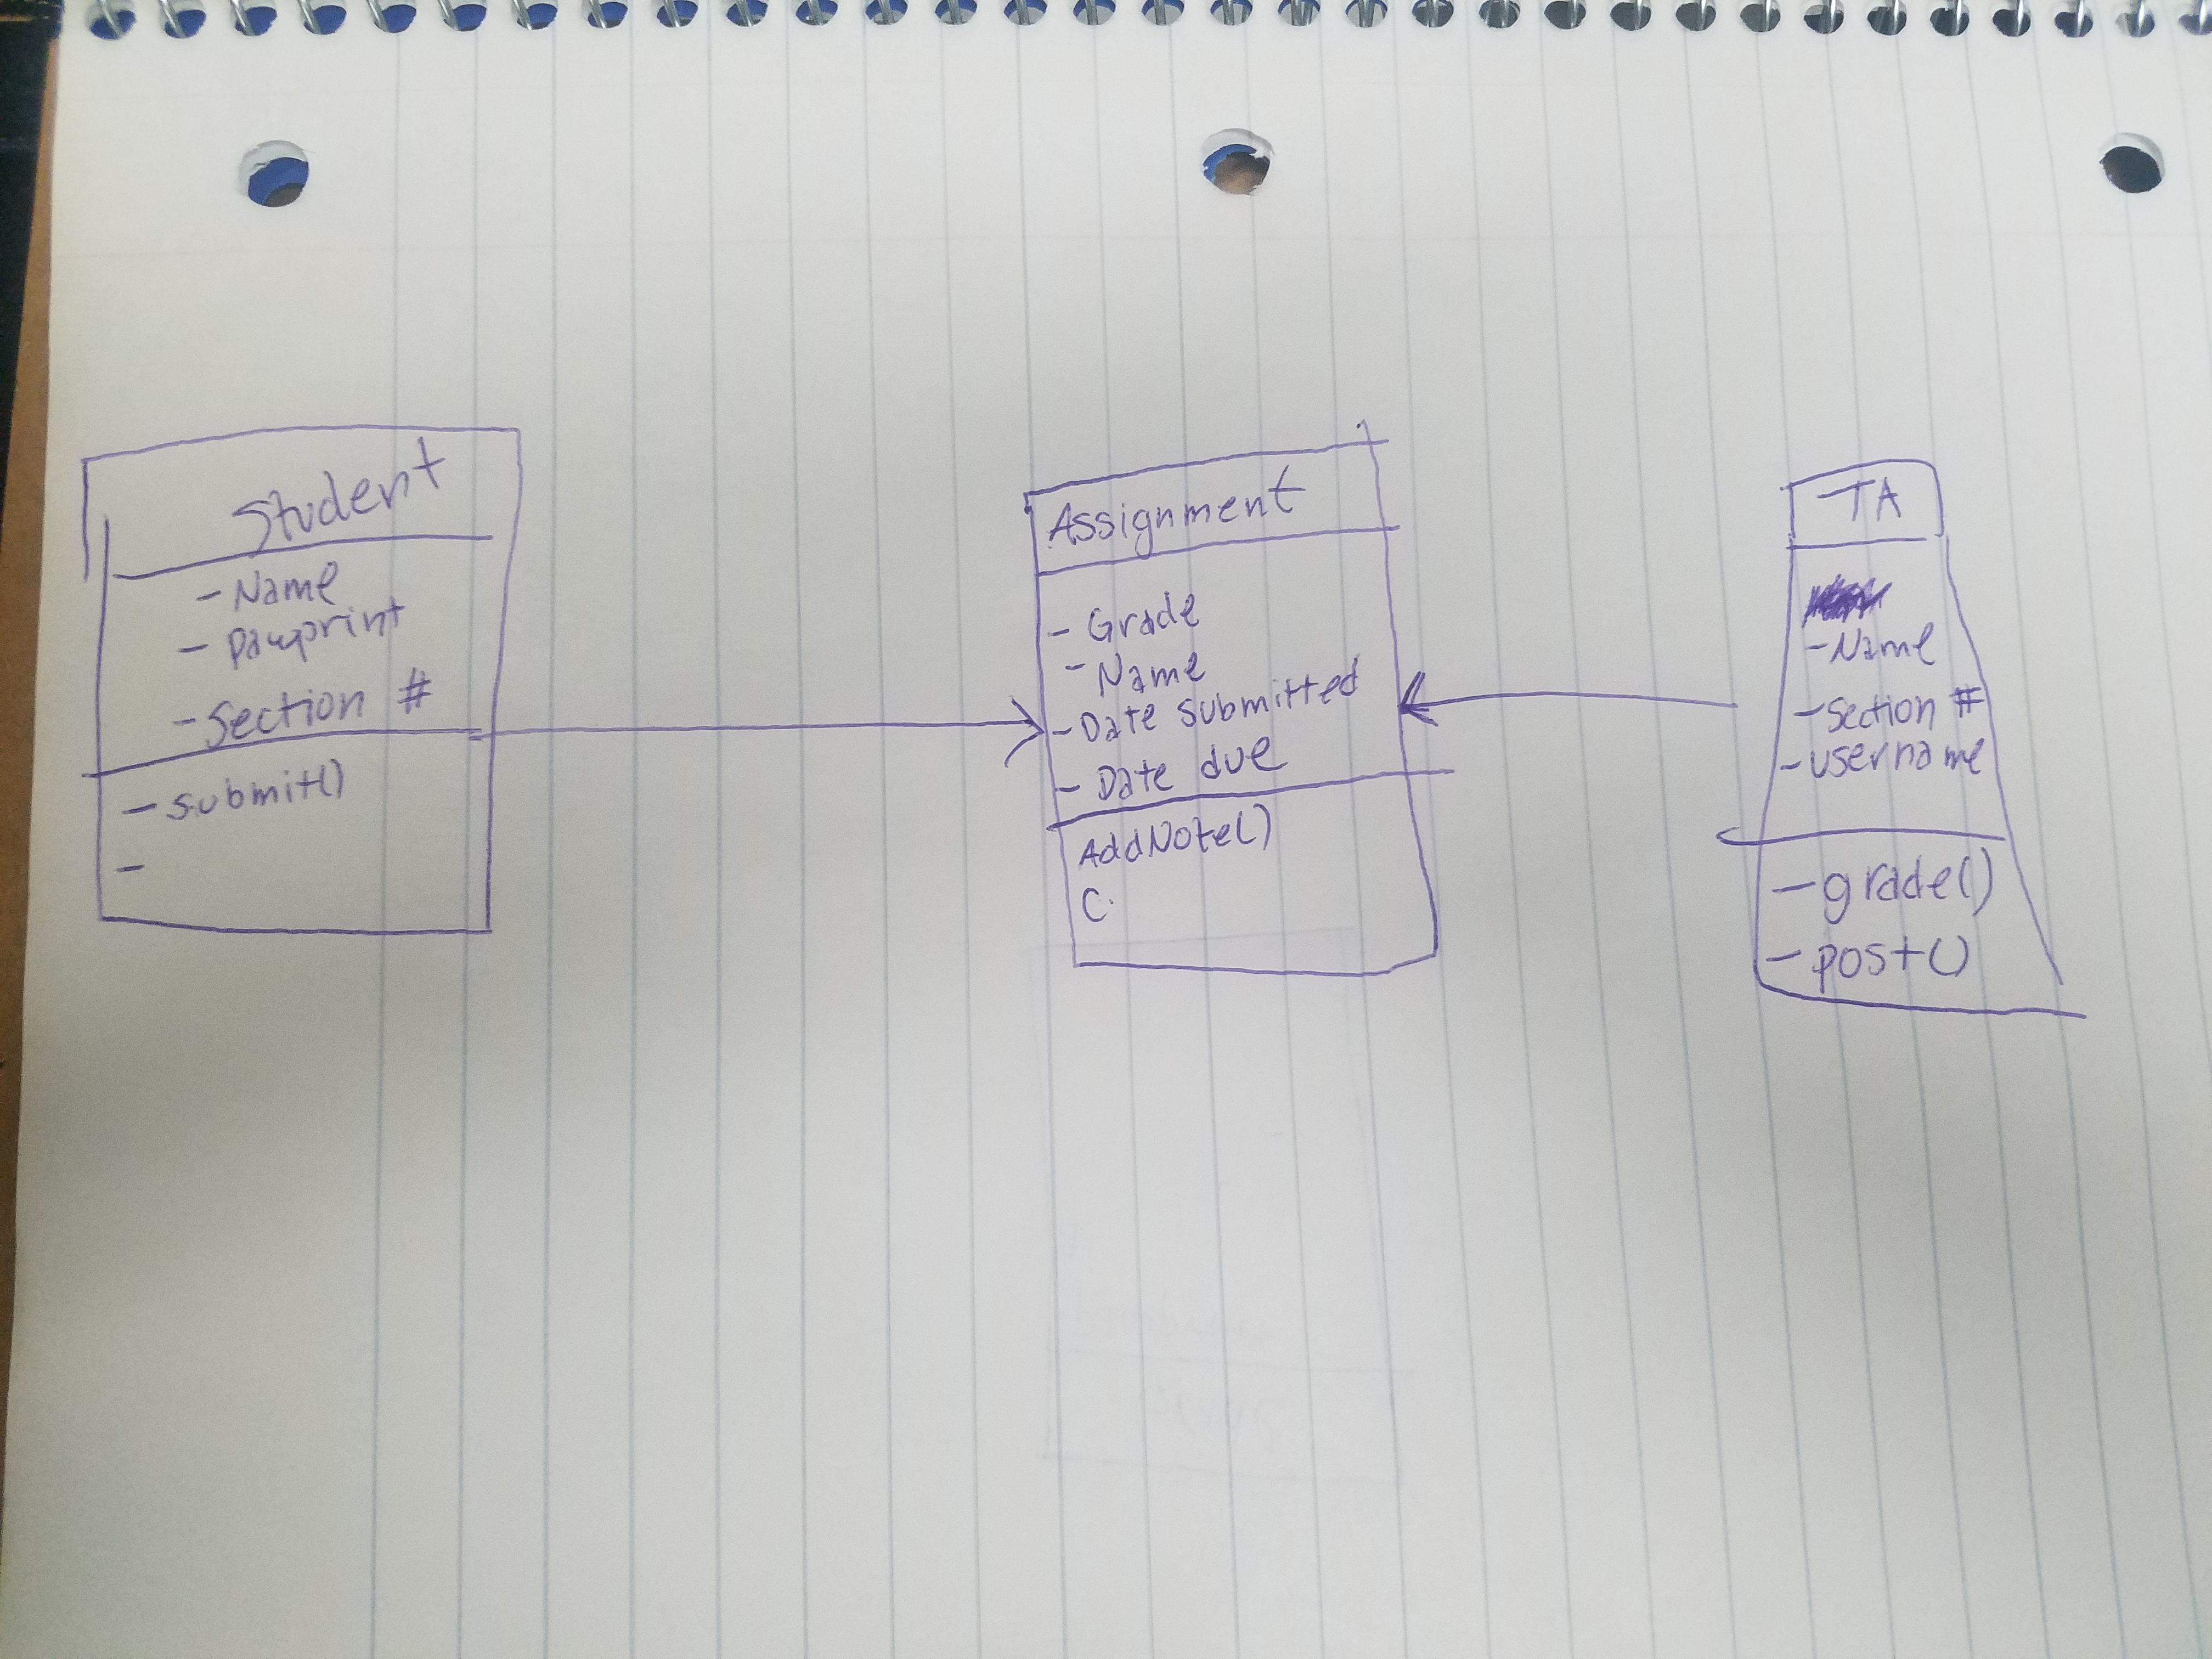 Student
- Name
- pawprint
- Section #
- submit()
-
Assignment
- Grade
- Name
- Date submitted
- Date due
AddNote()
C
TA
- Name
- Section #
- username
- grade()
- post()